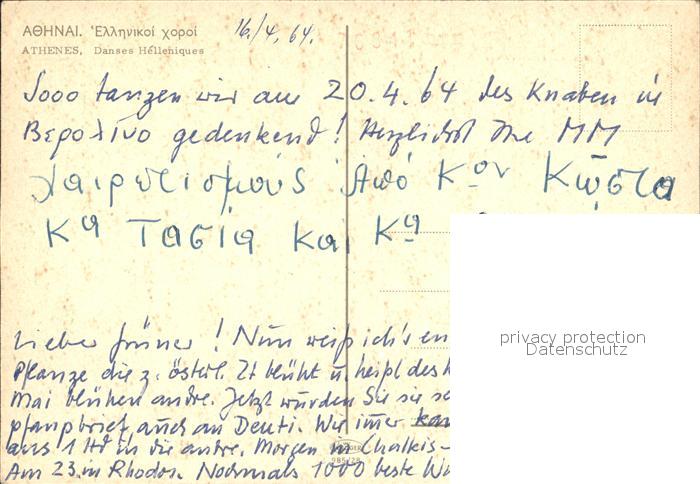 ΑΘΗΝΑΙ. Ἑλληνικοί χοροί
16./4. 64.
ATHENES, Danses Hélleniques
Sooo tanzen wir am 20.4.64 des Knaben in
Βερολίνο gedenkend! Herzlichst Ihre MM
χαιρετισμούς Ἀπό Κον Κώστα
Κα Τασία και Κα
Lieber ! Nun weiß ich's
Pflanze die z. österl. Zt blüht u. heißt des
Mai blühen andre. Jetzt würden Sie sie
auch an Deuti. Wir immer
aus 1 Hd in die andre. Morgen in Chalkis-
Am 23. in Rhodos. Nochmals 1000 beste
privacy protection
Datenschutz